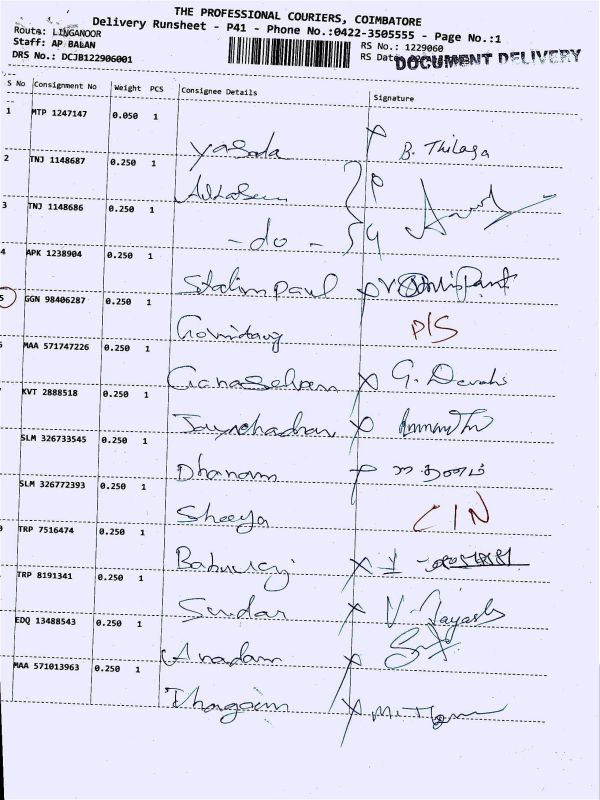 THE PROFESSIONAL COURIERS, COIMBATORE
Delivery Runsheet - P41 - Phone No.:0422-3505555 - Page No.:1
Route: LINGANOOR
Staff: AP BALAN
DRS No.: DCJB122906001
RS No.: 1229060
RS Date
DOCUMENT DELIVERY
S No Consignment No Weight PCS Consignee Details Signature
1 MTP 1247147 0.050 1
Yasoda B. Thilaga
2 TNJ 1148687 0.250 1
3 TNJ 1148686 0.250 1
- do -
4 APK 1238904 0.250 1
Stalin paul
5 GGN 98406287 0.250 1
Govindaraj P/S
MAA 571747226 0.250 1
Ganaselvam G. Devahi
KVT 2888518 0.250 1
SLM 326733545 0.250 1
Dhanam
SLM 326772393 0.250 1
Sheeya C/N
TRP 7516474 0.250 1
Baburaj
TRP 8191341 0.250 1
Sundar V. Jayash
EDQ 13488543 0.250 1
Anadam
MAA 571013963 0.250 1